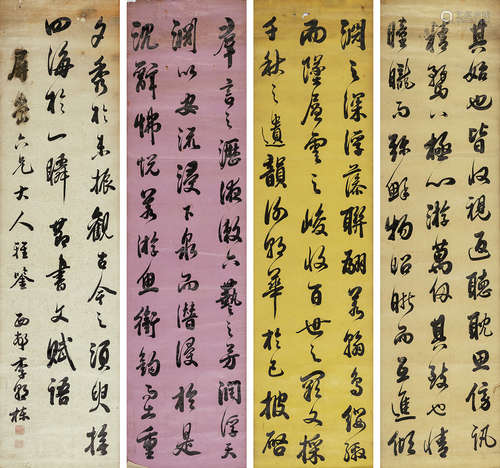 其始也皆收視返聽耽思傍訊
精騖八極心游萬仞其致也情
曈曨而彌鮮物昭晰而互進傾
羣言之瀝液漱六藝之芳潤浮天
淵以安流浸下泉而潛浸於是
沉辭怫悅若游魚銜鈎而出重
淵之深浮藻聯翩若翰鳥纓繳
而墜層雲之峻收百世之闕文採
千秋之遺韻謝朝華於已披啓
夕秀於未振觀古今之須臾撫
四海於一瞬 節書文賦語
屏 六兄大人雅鑒 西邨李朝棟